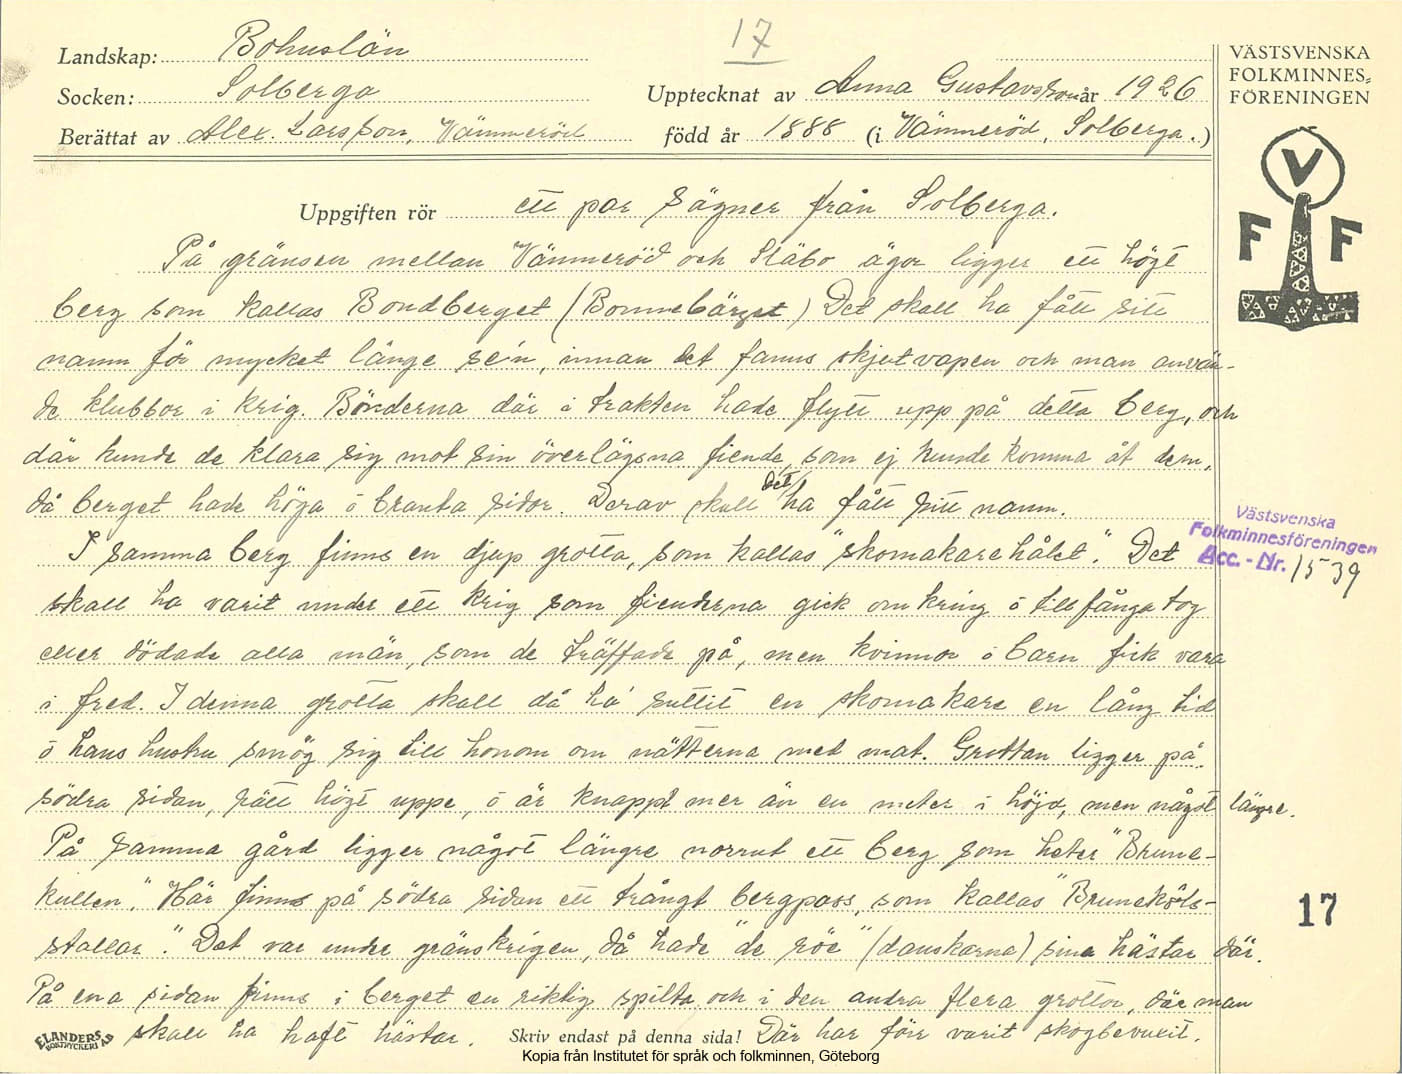 17
Landskap: Bohuslän
Socken: Solberga
Upptecknat av Anna Gustavsson år 1926
Berättat av Alex. Larsson, Vämmeröd
född år 1888 (i Vämmeröd, Solberga.)
VÄSTSVENSKA
FOLKMINNES-
FÖRENINGEN
V
F F
Uppgiften rör ett par sägner från Solberga.
På gränsen mellan Vämmeröd och Släbo ägor ligger ett högt
berg som kallas Bondberget (Bonnebärget) Det skall ha fått sitt
namn för mycket länge se'n, innan det fanns skjutvapen och man använ-
de klubbor i krig. Bönderna där i trakten hade flytt upp på detta berg, och
där kunde de klara sig mot sin överlägsna fiende, som ej kunde komma åt dem,
då berget hade höga o branta sidor. Derav skall det ha fått sitt namn.
I samma berg finns en djup grotta, som kallas "skomakarehålet". Det
skall ha varit under ett krig som fienderna gick omkring o tillfångatog
eller dödade alla män, som de träffade på, men kvinnor o barn fick vara
i fred. I denna grotta skall då ha suttit en skomakare en lång tid
o hans hustru smög sig till honom om nätterna med mat. Grottan ligger på
södra sidan, rätt högt uppe, o är knappt mer än en meter i höjd, men något längre.
På samma gård ligger något längre norrut ett berg som heter "Brune-
kullen". Här finns på södra sidan ett trångt bergpass, som kallas "Bruneköls-
stallar". Det var under gränskrigen, då hade "de röe" (danskarna) sina hästar där.
På ena sidan finns i berget en riktig spilta och i den andra flera grottor, där man
skall ha haft hästar. Där har förr varit skogbevuxit.
Västsvenska
Folkminnesföreningen
Acc.-Nr. 1539
17
ELANDERS
BOKTRYCKERI AB
Skriv endast på denna sida!
Kopia från Institutet för språk och folkminnen, Göteborg